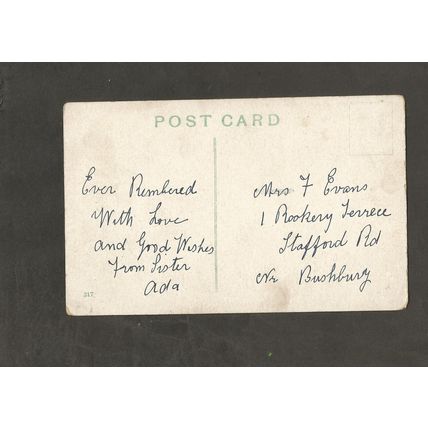 POST CARD
Ever Rembered
With Love
and Good Wishes
From Sister
Ada
Mrs F Evans
1 Rookery Terrece
Stafford Rd
Nr Bushbury
317